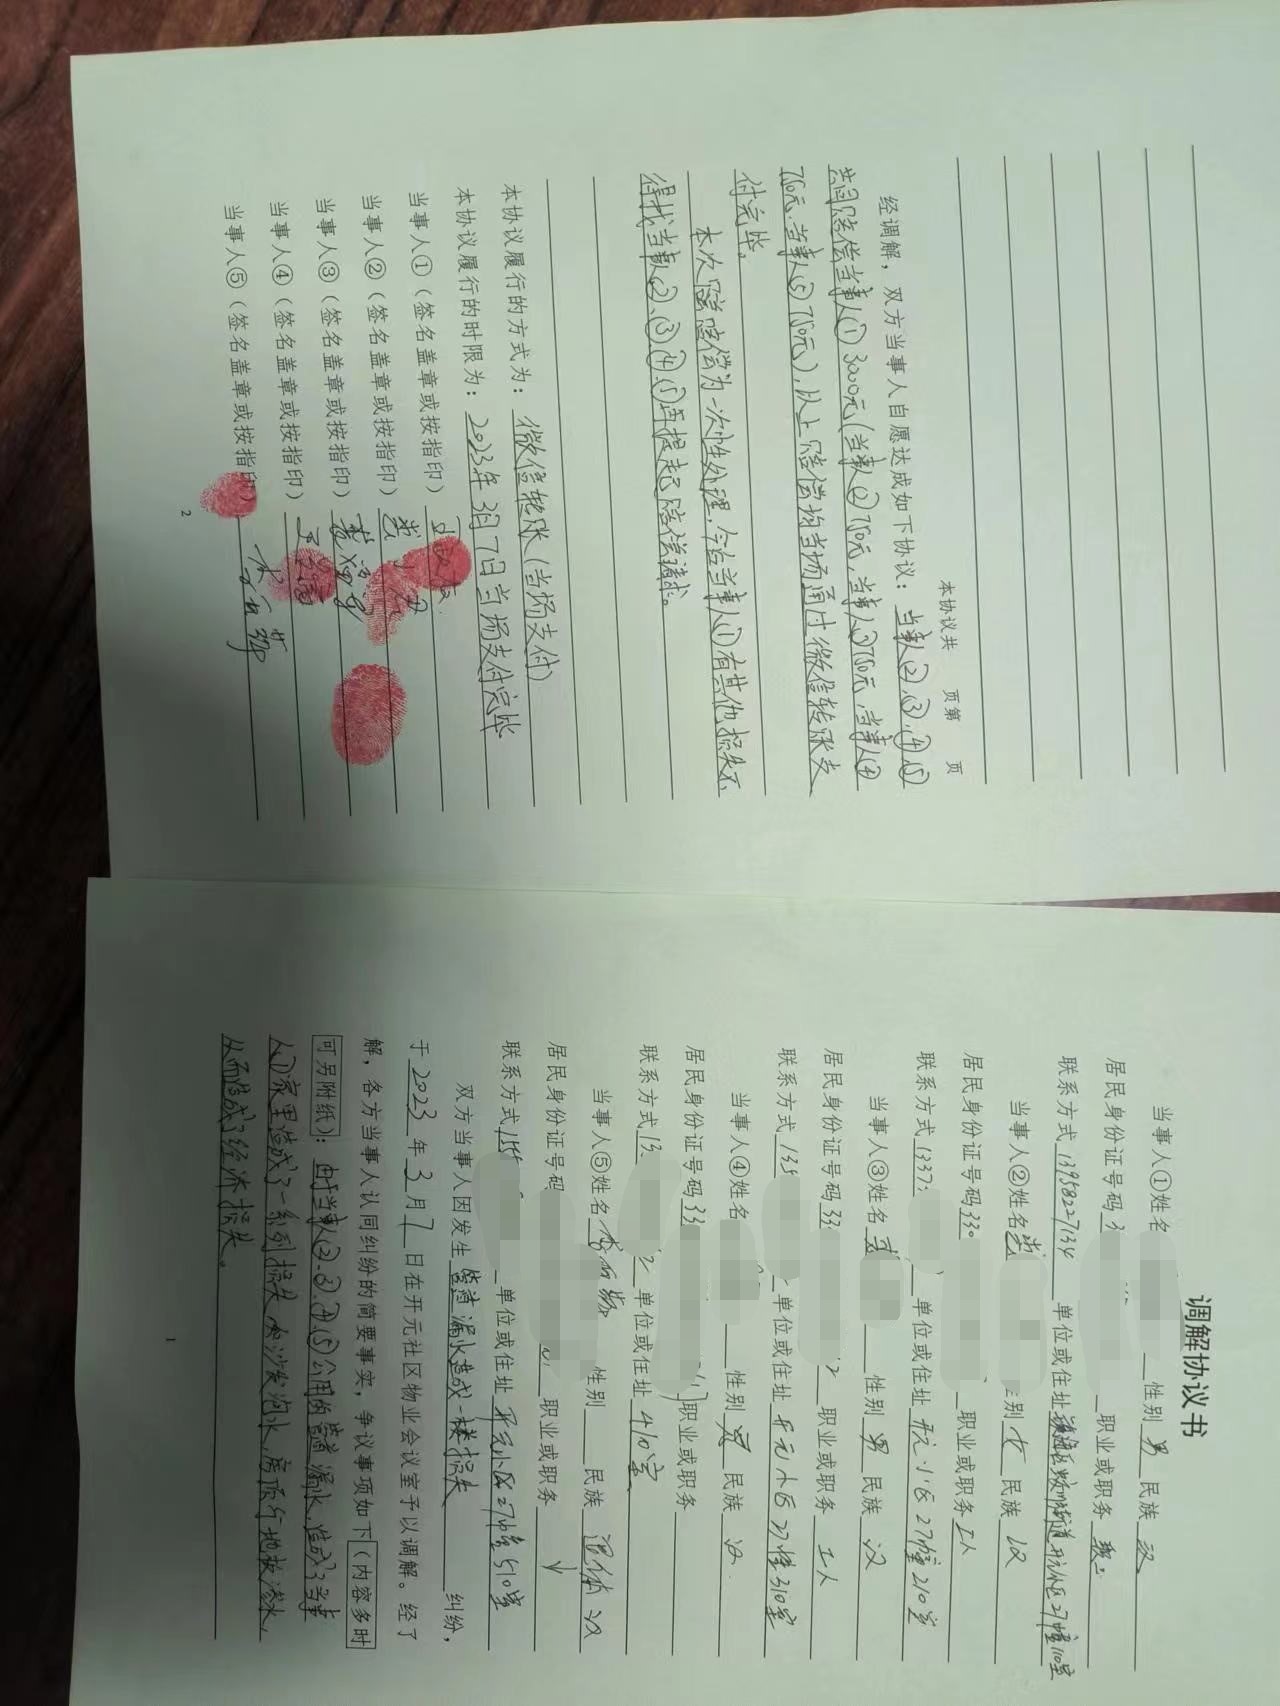 调解协议书
当事人①姓名 性别 男 民族 汉
居民身份证号码 3 职业或职务
联系方式 13958227134 单位或住址 镇海区 街道开元小区27幢110室
当事人②姓名 性别 女 民族 汉
居民身份证号码 330 职业或职务 工人
联系方式 1337 单位或住址 开元小区27幢210室
当事人③姓名 性别 男 民族 汉
居民身份证号码 33 职业或职务 工人
联系方式 135 单位或住址 开元小区27幢310室
当事人④姓名 性别 男 民族 汉
居民身份证号码 33 职业或职务
联系方式 13 2 单位或住址 410室
当事人⑤姓名 性别 民族 汉
居民身份证号码 职业或职务
联系方式 155 单位或住址 开元小区27幢510室
双方当事人因发生 管道漏水造成一楼损失 纠纷,
于 2023 年 3 月 7 日在开元社区物业会议室予以调解。经了
解,各方当事人认同纠纷的简要事实,争议事项如下(内容多时
可另附纸): 由于当事人②.③.④.⑤公用的管道漏水,造成了当事
人①家里造成了一系列损失 如沙发泡水,房顶、地板渗水,
从而造成了经济损失。
1
本协议共 页第 页
经调解,双方当事人自愿达成如下协议: 当事人②、③、④、⑤
共同赔偿当事人①3000元(当事人②750元,当事人③750元,当事人④
750元,当事人⑤750元),以上赔偿均当场通过微信转账支
付完毕。
本次赔偿为一次性处理,今后当事人①有其他损失不
得找当事人②、③、④、⑤再提起赔偿请求。
本协议履行的方式为: 微信转账(当场支付)
本协议履行的时限为: 2023年3月7日当场支付完毕
当事人①(签名盖章或按指印)
当事人②(签名盖章或按指印)
当事人③(签名盖章或按指印)
当事人④(签名盖章或按指印)
当事人⑤(签名盖章或按指印)
2